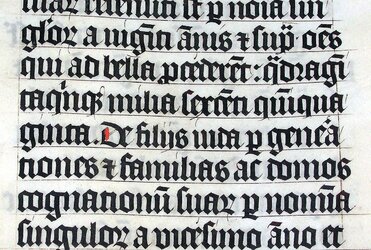 suaꝝ recensiti st̄ ꝑ noīa sin
gloꝝ a uigīti ānis ⁊ supͣ. oēs
qui ad bella ꝓcederēt: q̄dragī
taqīnqꝫ milia sexcēti qīnqua
ginta. De filijs iuda ꝑ genera
tiones ⁊ familias ac domos
cognationū suaꝝ ꝑ nomīa
singuloꝝ a vicesimo āno et